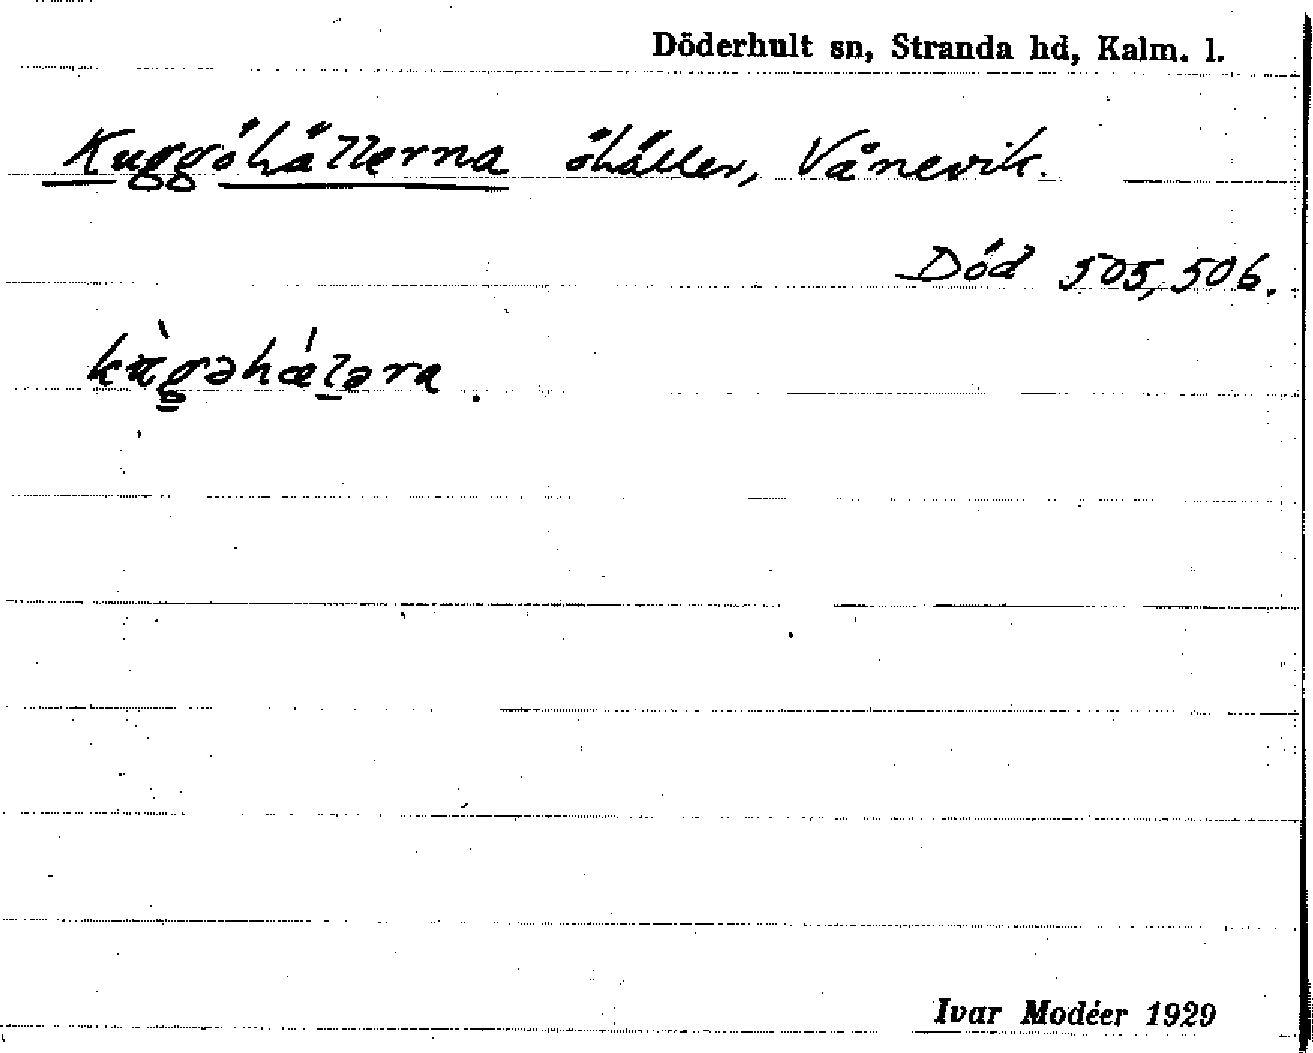 Döderhult sn, Stranda hd, Kalm. l.
Kuggöhällerna öhäller, Vånevik.
Död 505, 506.
kùgəhǽləra.
Ivar Modéer 1929